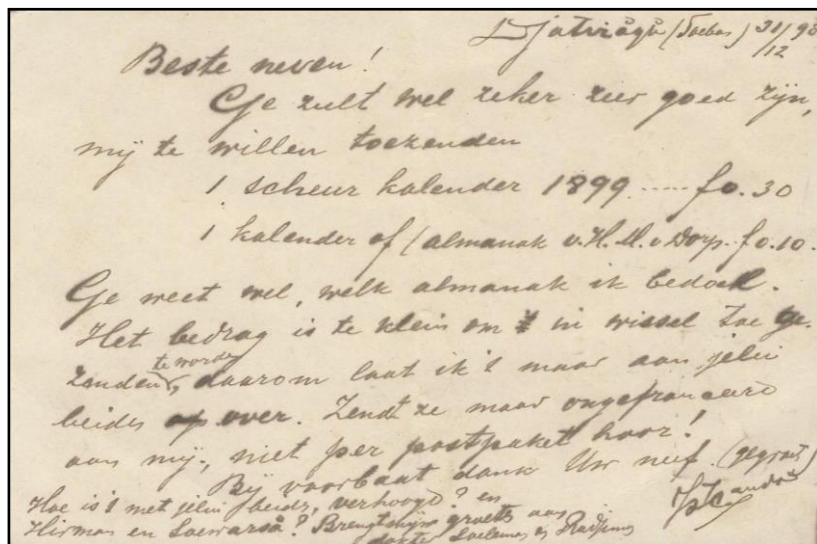 Djatirågå (Toebas) 31/98
/12
Beste neven!
Ge zult wel zeker zeer goed zijn,
mij te willen toezenden
1 scheur kalender 1899 ..... fo.30
1 kalender of (almanak v.H.M.v Dorp. fo.10.
Ge weet wel, welk almanak ik bedoel.
Het bedrag is te klein om in wissel toe ge-
zonden te worden, daarom laat ik 't maar aan jelui
beiden over. Zendt ze maar ongefrankeerd
aan mij, niet per postpaket hoor!
Bij voorbaat dank Uw neef (gegroet)
Hoe is 't met jelui beide, verhoogd? en
Hirman en Soewarså? Brengt mijn groete aan
dokter Soeleman en